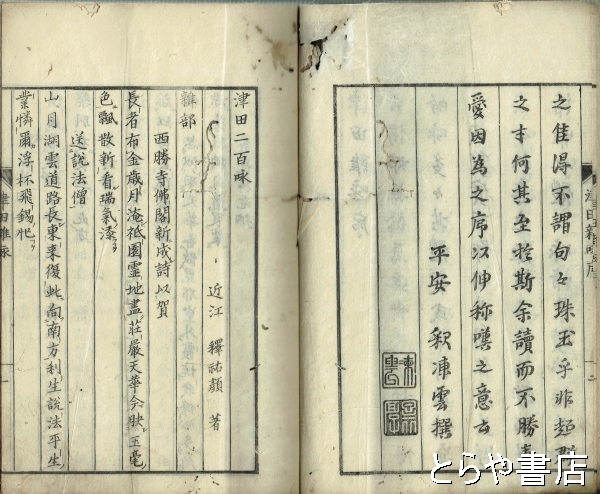 之佳得不謂句々珠玉乎非超群
之才何其至於斯余讀而不勝
愛因為之序以伸称嘆之意云
平安釈凍雲撰
津田二百咏
近江 釋祐顔 著
雜部
西勝寺佛閣新成詩以賀
長者布金歳月淹祗園霊地盡荘嚴天華今映玉毫
色瓢散新看瑞氣添
送説法僧
山月湖雲道路長東来復此向南方利生説法平生
業憐爾浮杯飛錫
津田雜咏
とらや書店